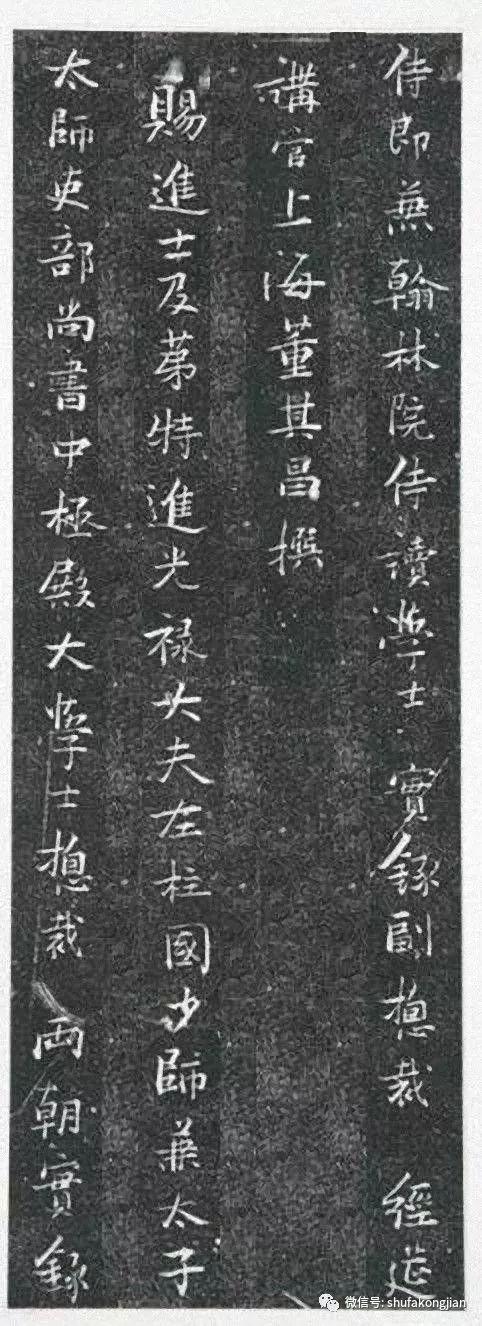 侍郎兼翰林院侍讀學士 實錄副揔裁 經筵
講官上海董其昌撰
賜進士及第特進光祿大夫左柱國少師兼太子
太師吏部尚書中極殿大學士揔裁 兩朝實錄
微信号: shufakongjian